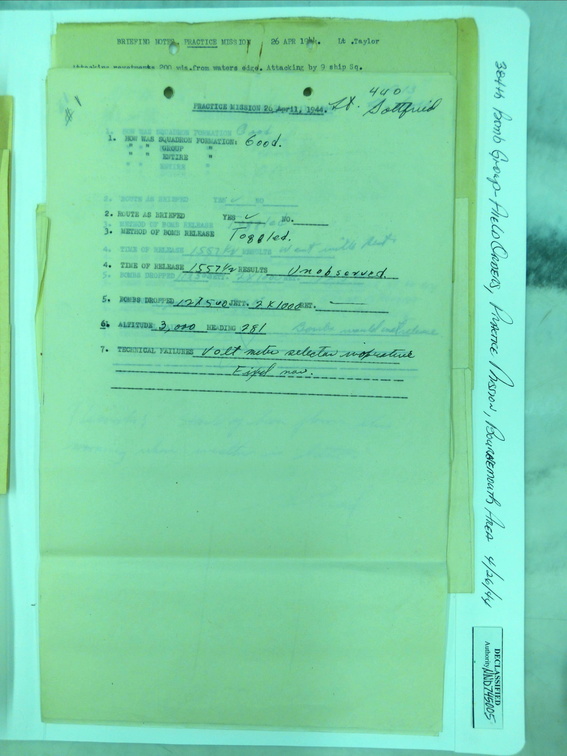 BRIEFING NOTES, PRACTICE MISSION 26 APR 1944. Lt .Taylor
Attacking movements 200 yds.from waters edge. Attacking by 9 ship Sq.
440
PRACTICE MISSION 26 April, 1944. Lt. Gottfried
1. HOW WAS SQUADRON FORMATION: Good.
" " GROUP "
" " ENTIRE "
2. ROUTE AS BRIEFED YES ✓ NO.
3. METHOD OF BOMB RELEASE Toggled.
4. TIME OF RELEASE 1557½ RESULTS Unobserved
5. BOMBS DROPPED 12X500 JETT. 2X1000 RET. —
6. ALTITUDE 3,000 HEADING 281
7. TECHNICAL FAILURES Volt meter selector inoperative
384th Bomb Group-Field Orders, Practice Mission, Bournemouth Area 4/26/44
DECLASSIFIED
Authority NND745005